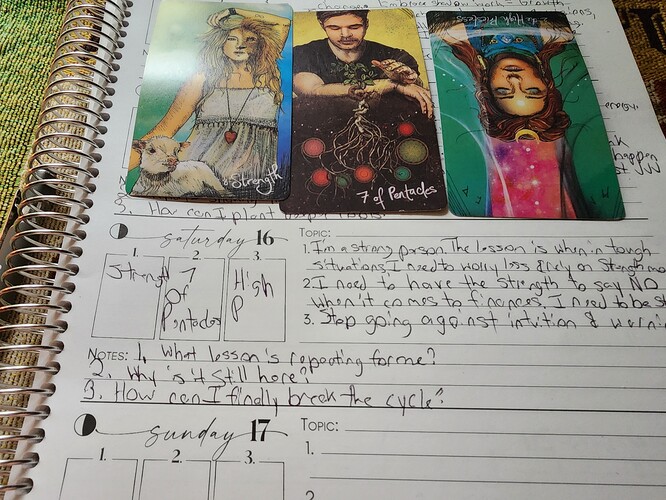 Change Embrace shadow work = Growth,
The High Priestess
Strength
7 of Pentacles
energy.
happen
3. How can I plant deeper roots?
saturday 16
TOPIC:
1. 2. 3.
Strength
7 of Pentacles
High P
1. I'm a strong person. The lesson is when in tough
situations, I need to worry less & rely on Strength more
2 I need to have the strength to say NO
when it comes to finances. I need to be
3. Stop going against intuition &
NOTES: 1. What lesson is repeating for me?
2. Why is it still here?
3. How can I finally break the cycle?
sunday 17
TOPIC:
1. 2. 3.
1.
2